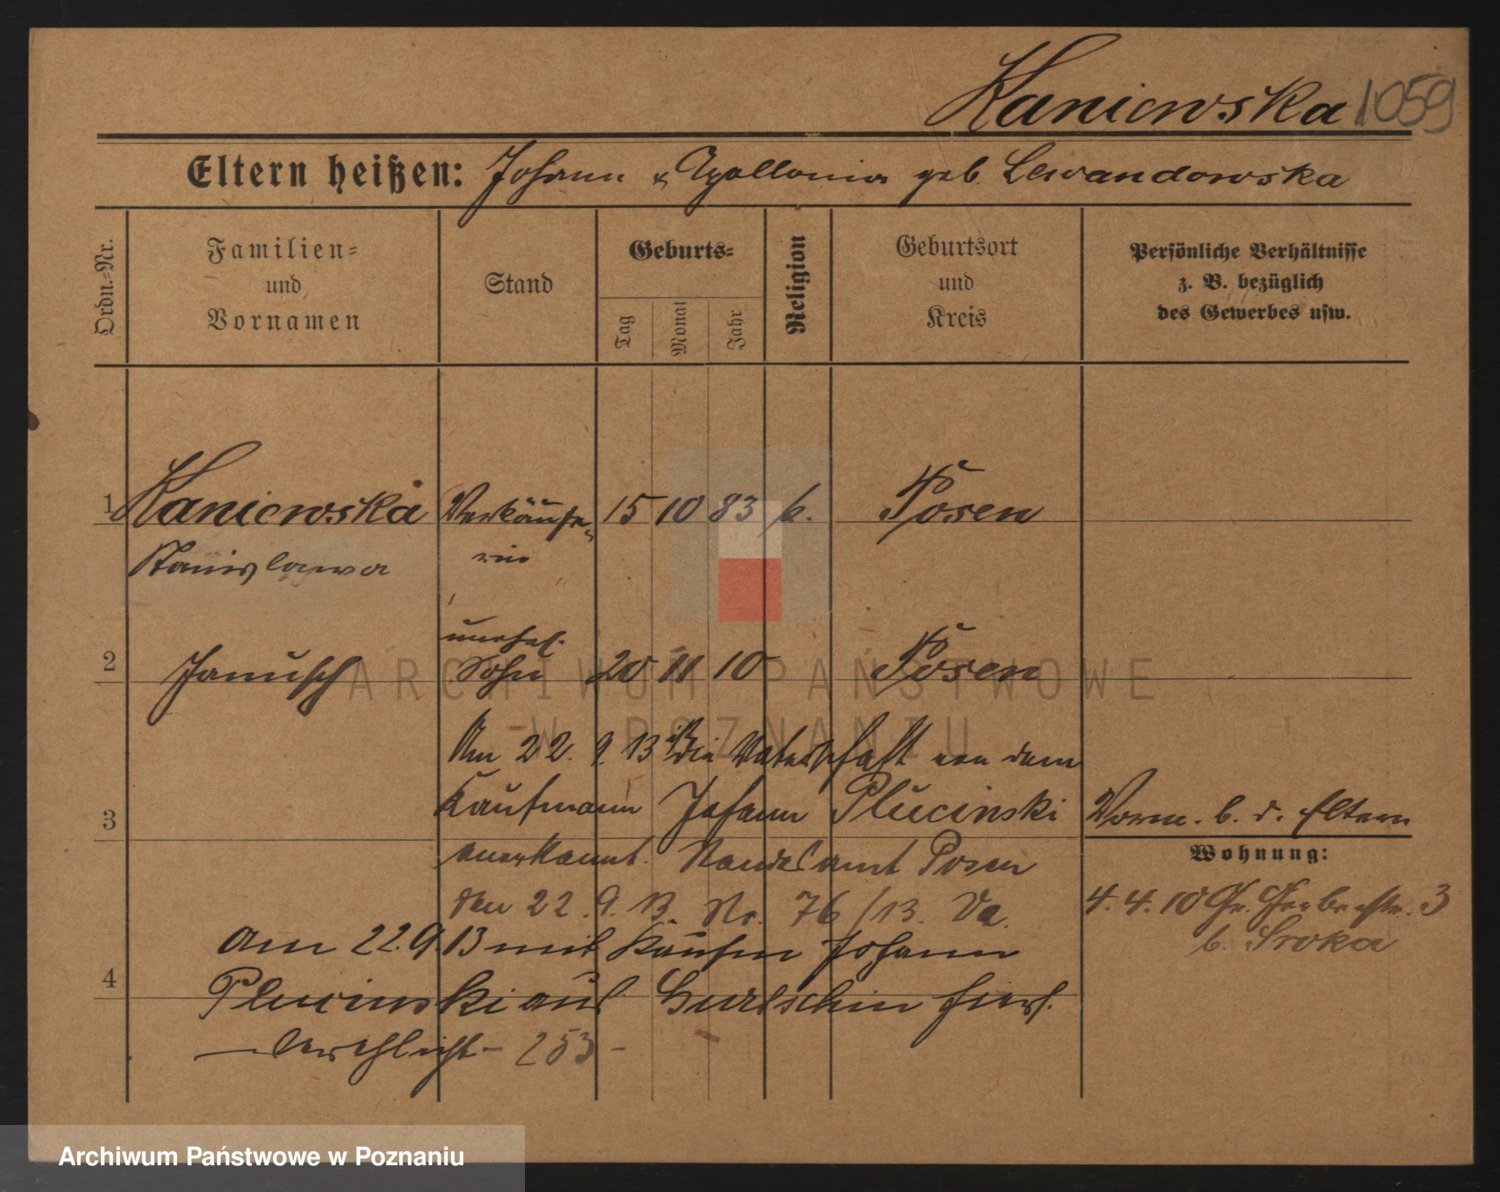 Kaniewska 1059
Eltern heißen: Johann & Apollonia geb. Lewandowska
Ordn.-Nr.
Familien-
und
Vornamen
Stand
Geburts-
Tag
Monat
Jahr
Religion
Geburtsort
und
Kreis
Persönliche Verhältnisse
z. B. bezüglich
des Gewerbes usw.
1 Kaniewska Verkäufe- 15 10 83 k. Posen
Stanislawa rin
unehel.
2 Janusch Sohn 20 11 10 Posen
ARCHIWUM PAŃSTWOWE
W POZNANIU
Am 22. 9. 13 die Vaterschaft von dem
Kaufmann Johann Plucinski
3
anerkannt. Standesamt Posen
den 22. 9. 13. Nr. 76/13. Va.
Vorm. b. d. Eltern
Wohnung:
4. 4. 10 Gr. Gerberstr. 3
b. Sroka
Am 22.9.13 mit Kaufm Johann
4 Plucinski aus Gurtschin hier
verehlicht - 253 -
Archiwum Państwowe w Poznaniu